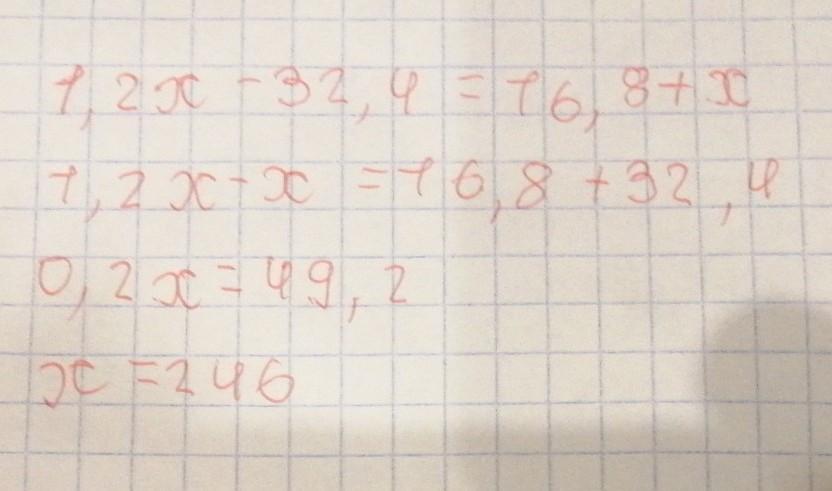 1,2x - 32,4 = 16,8 + x
1,2x - x = 16,8 + 32,4
0,2x = 49,2
x = 246